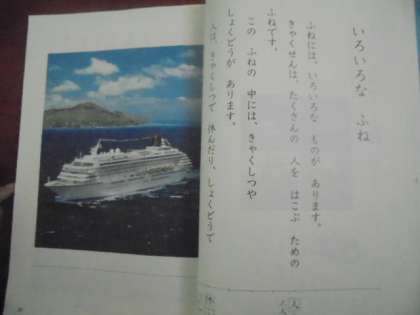 いろいろな ふね
ふねには、いろいろな ものが あります。
きゃくせんは、たくさんの 人を はこぶ ための
ふねです。
この ふねの 中には、きゃくしつや
しょくどうが あります。
人は、きゃくしつで 休んだり、しょくどうで
人
休